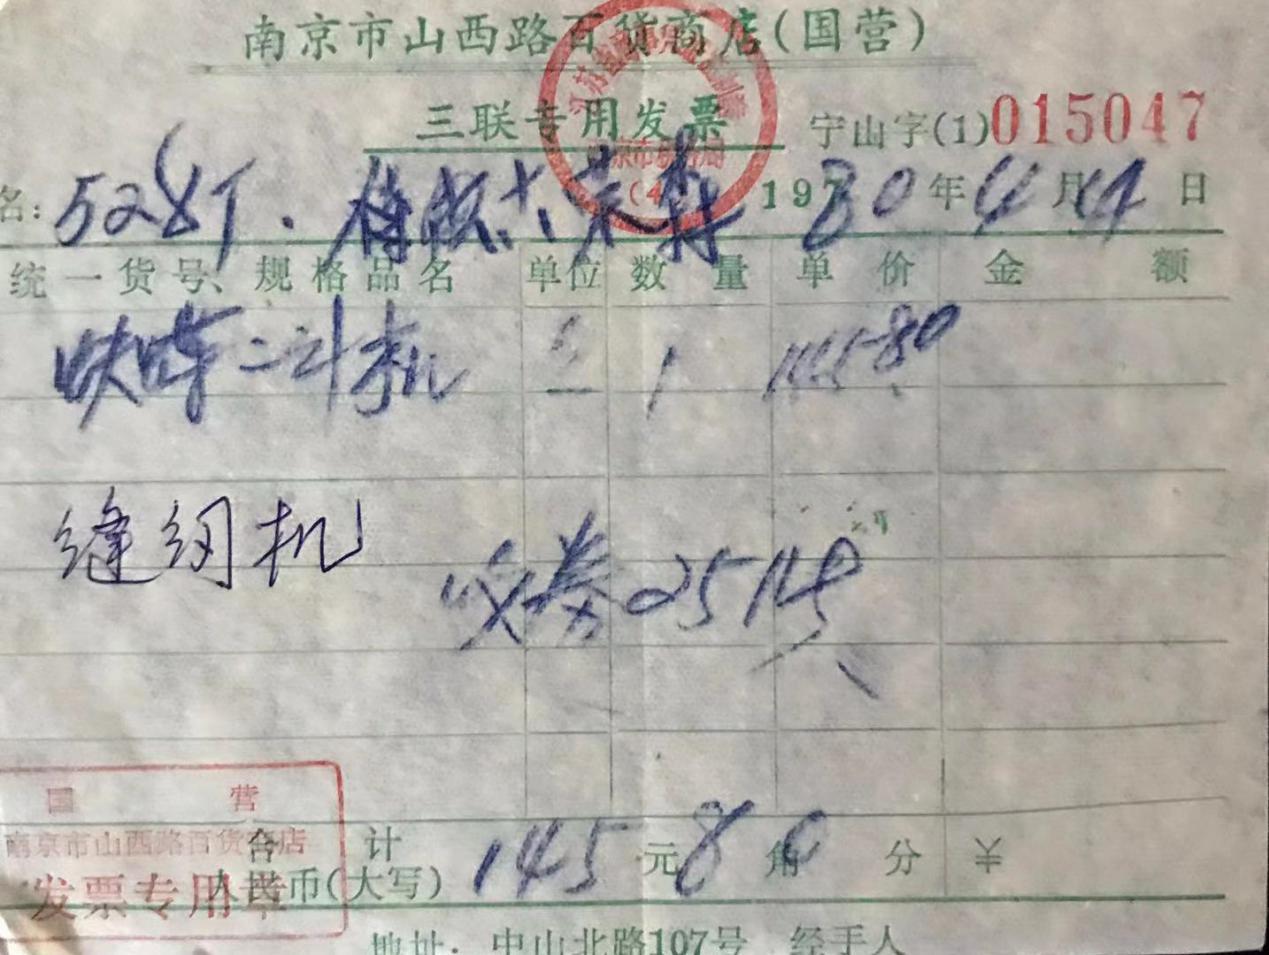 南京市山西路百货商店(国营)
三联专用发票 宁山字(1)015047
名: 528厂. 1980年4月14日
统一货号、规格品名 单位 数量 单价 金额
二斗机 1 145-80
缝纫机
收券25
国营
南京市山西路百货商店
发票专用章
合计
人民币(大写) 145元80角 分 ¥
地址: 中山北路107号 经手人